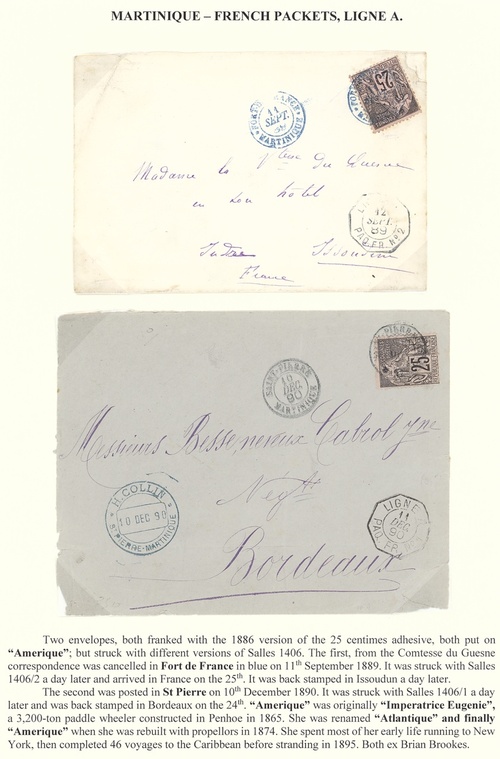 MARTINIQUE – FRENCH PACKETS, LIGNE A.
FORT-DE-FRANCE
11
SEPT.
MARTINIQUE
25
Madame la Vtesse Du Guesne
en son hôtel
12
SEPT.
89
PAQ. FR. Nº 2
Indre Issoudun
France
SAINT-PIERRE
10
DEC
90
MARTINIQUE
25
Messieurs Cabrol
Negts
H. COLLIN
10 DEC 90
ST PIERRE-MARTINIQUE
LIGNE
11
DEC
90
PAQ. FR.
Bordeaux
Two envelopes, both franked with the 1886 version of the 25 centimes adhesive, both put on
“Amerique”; but struck with different versions of Salles 1406. The first, from the Comtesse du Guesne
correspondence was cancelled in Fort de France in blue on 11th September 1889. It was struck with Salles
1406/2 a day later and arrived in France on the 25th. It was back stamped in Issoudun a day later.
The second was posted in St Pierre on 10th December 1890. It was struck with Salles 1406/1 a day
later and was back stamped in Bordeaux on the 24th. “Amerique” was originally “Imperatrice Eugenie”,
a 3,200-ton paddle wheeler constructed in Penhoe in 1865. She was renamed “Atlantique” and finally
“Amerique” when she was rebuilt with propellors in 1874. She spent most of her early life running to New
York, then completed 46 voyages to the Caribbean before stranding in 1895. Both ex Brian Brookes.